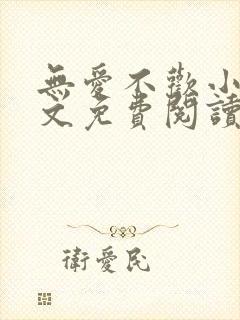 無愛不歡小
文免費閱讀
衛愛民